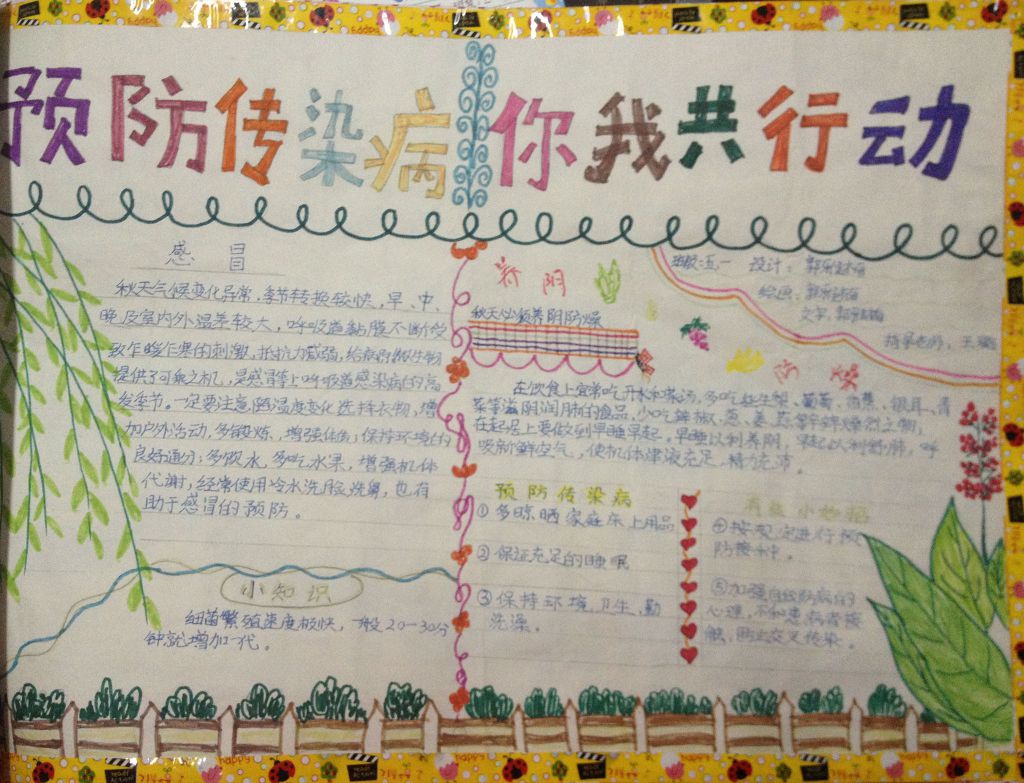 预防传染病 你我共行动
感冒
秋天气候变化异常,季节转换较快,早、中、
晚及室内外温差较大,呼吸道黏膜不断受
致乍暖乍寒的刺激,抵抗力减弱,给病原微生物
提供了可乘之机,是感冒等上呼吸道感染病的高
发季节。一定要注意随温度变化选择衣物,增
加户外活动,多锻炼、增强体质;保持环境的
良好通分;多饮水,多吃水果,增强机体
代谢,经常使用冷水洗脸、洗鼻,也有
助于感冒的预防。
小知识
细菌繁殖速度极快,一般20-30分
钟就增加一代。
养阴
秋天必须养阴防燥
班级:五、一 设计:
绘画:
文字:
指导老师:王
防燥
在饮食上宜常吃开水和菜汤,多吃
菜等滋阴润肺的食品,少吃辣椒、葱、姜、蒜等辛辣燥烈之物,
在起居上要做到早睡早起。早睡以利养阴,早起以利舒肺,呼
吸新鲜空气,使机体津液充足,精力充沛。
预防传染病
①多晾晒家庭床上用品
②保证充足的睡眠
③保持环境卫生、勤
洗澡。
有效小妙招
④按规定进行预
防接种。
⑤加强自我防病的
心理,不和患病者接
触,防止交叉传染。